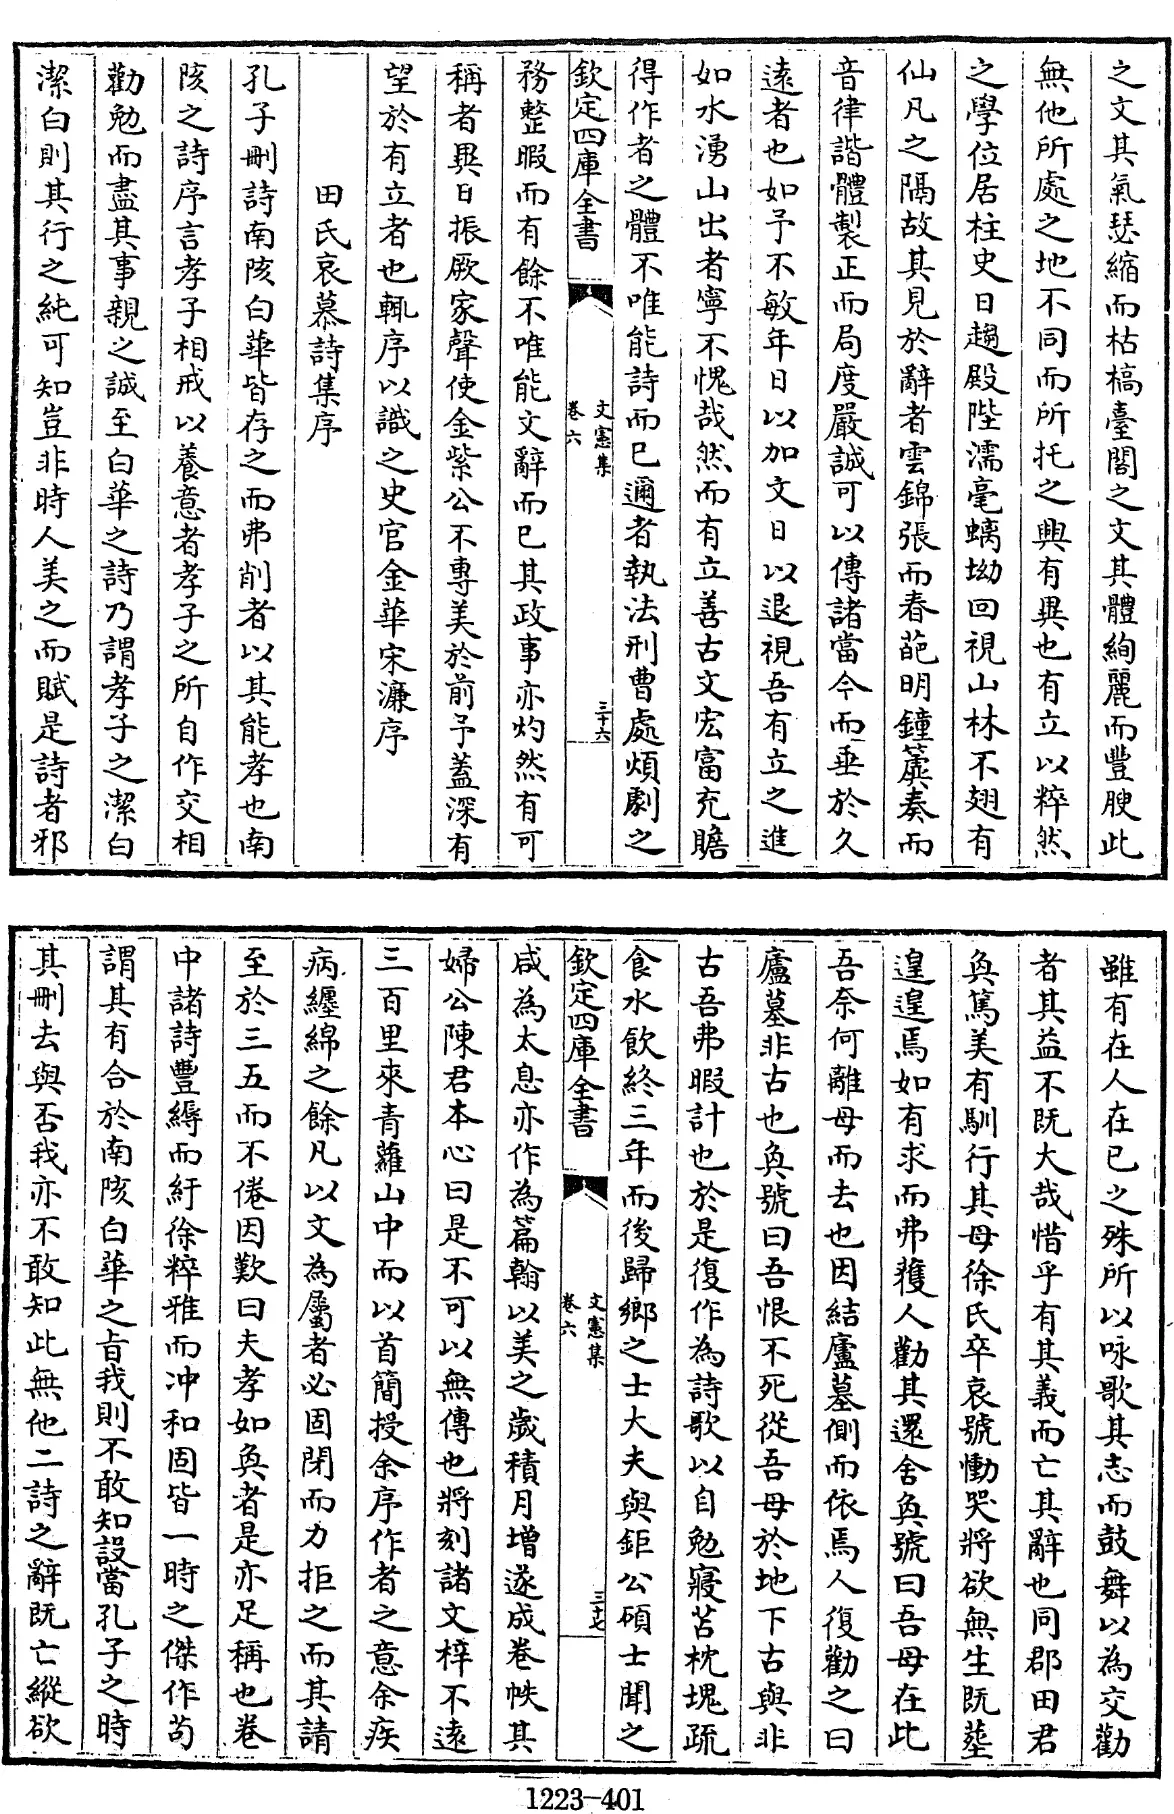 之文其氣瑟縮而枯槁臺閣之文其體絢麗而豐腴此
無他所處之地不同而所托之興有異也有立以粹然
之學位居柱史日趨殿陛濡毫螭坳回視山林不翅有
仙凡之隔故其見於辭者雲錦張而春葩明鐘簴奏而
音律諧體製正而局度嚴誠可以傳諸當今而垂於久
遠者也如予不敏年日以加文日以退視吾有立之進
如水湧山出者寧不愧哉然而有立善古文宏富充贍
得作者之體不唯能詩而已邇者執法刑曹處煩劇之
欽定四庫全書
文憲集
卷六
三十六
務整暇而有餘不唯能文辭而已其政事亦灼然有可
稱者異日振厥家聲使金紫公不專美於前予蓋深有
望於有立者也輒序以識之史官金華宋濂序
田氏哀慕詩集序
孔子刪詩南陔白華皆存之而弗削者以其能孝也南
陔之詩序言孝子相戒以養意者孝子之所自作交相
勸勉而盡其事親之誠至白華之詩乃謂孝子之潔白
潔白則其行之純可知豈非時人美之而賦是詩者邪
雖有在人在已之殊所以咏歌其志而鼓舞以為交勸
者其益不既大哉惜乎有其義而亡其辭也同郡田君
奐篤美有馴行其母徐氏卒哀號慟哭將欲無生既塟
遑遑焉如有求而弗獲人勸其還舍奐號曰吾母在此
吾奈何離母而去也因結廬墓側而依焉人復勸之曰
廬墓非古也奐號曰吾恨不死從吾母於地下古與非
古吾弗暇計也於是復作為詩歌以自勉寢苫枕塊疏
食水飲終三年而後歸鄉之士大夫與鉅公碩士聞之
欽定四庫全書
文憲集
卷六
三十七
咸為太息亦作為篇翰以美之歲積月增遂成卷帙其
婦公陳君本心曰是不可以無傳也將刻諸文梓不遠
三百里來青蘿山中而以首簡授余序作者之意余疾
病纏綿之餘凡以文為屬者必固閉而力拒之而其請
至於三五而不倦因歎曰夫孝如奐者是亦足稱也卷
中諸詩豐縟而紆徐粹雅而冲和固皆一時之傑作茍
謂其有合於南陔白華之旨我則不敢知設當孔子之時
其刪去與否我亦不敢知此無他二詩之辭既亡縱欲
1223-401